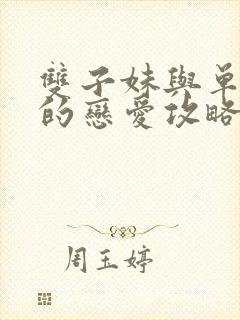 雙子妹與單
的戀愛攻略
周玉婷